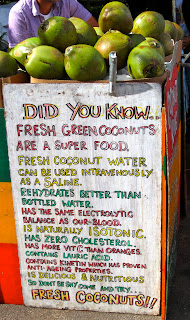 DID YOU KNOW..
FRESH GREEN COCONUTS
ARE A SUPER FOOD.
FRESH COCONUT WATER
CAN BE USED INTRAVENOUSLY
AS A SALINE.
REHYDRATES BETTER THAN
BOTTLED WATER.
HAS THE SAME ELECTROLYTIC
BALANCE AS OUR BLOOD.
IS NATURALLY ISOTONIC.
HAS ZERO CHOLESTEROL.
HAS MORE VIT C THAN ORANGES.
CONTAINS LAURIC ACID.
CONTAINS KINETIN WHICH HAS PROVEN
ANTI-AGEING PROPERTIES.
IS DELICIOUS & NUTRITIOUS
SO DON'T BE SHY COME AND TRY.
FRESH COCONUTS!!